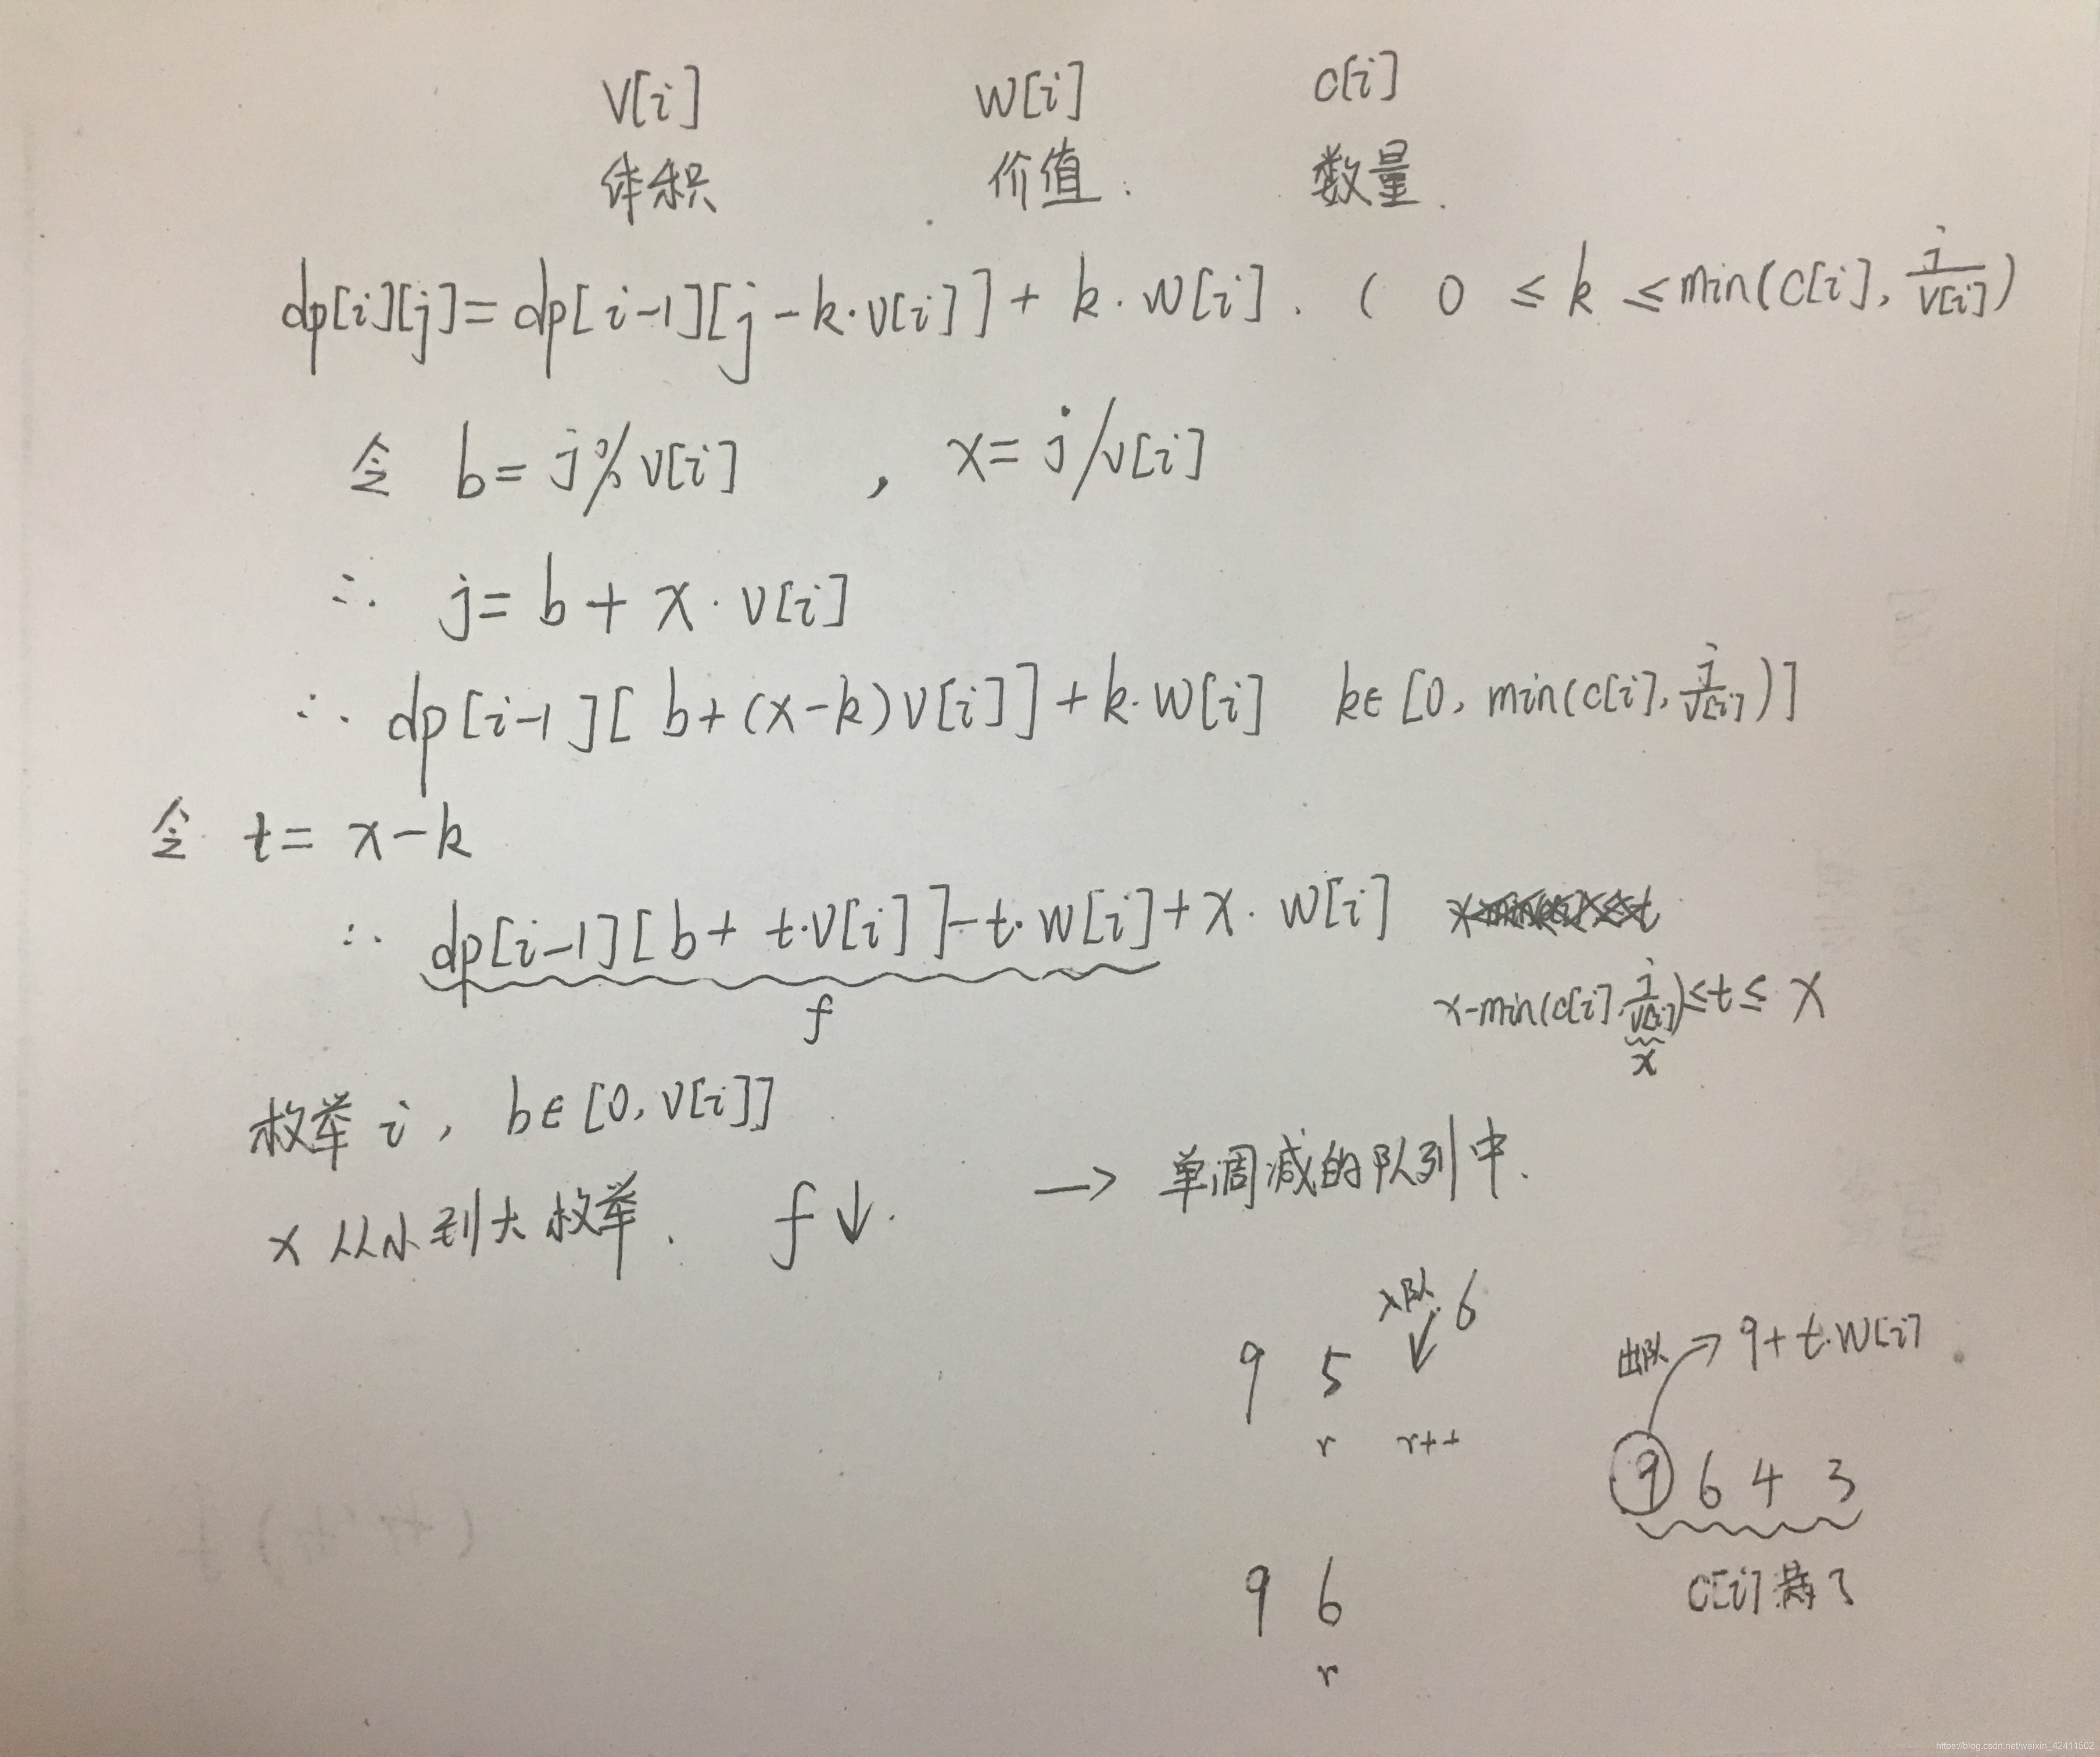 V[i] W[i] C[i]
体积 价值. 数量.
dp[i][j]=dp[i-1][j-k·v[i]]+k·w[i]. ( 0 ≤ k ≤ min(c[i], j/v[i])
令 b=j%v[i] , x=j/v[i]
∴ j=b+x·v[i]
∴ dp[i-1][b+(x-k)v[i]]+k·w[i] k∈[0, min(c[i], j/v[i])]
令 t=x-k
∴ dp[i-1][b+t·v[i]]-t·w[i]+x·w[i]
f
x-min(c[i], j/v[i])≤t≤x
x
枚举 i, b∈[0, v[i]]
x从小到大枚举. f↓. → 单调减的队列中.
入队 6
9 5
r r++
出队 → 9+t·w[i]
9 6 4 3
c[i]满了
9 6
r
https://blog.csdn.net/weixin_42411502